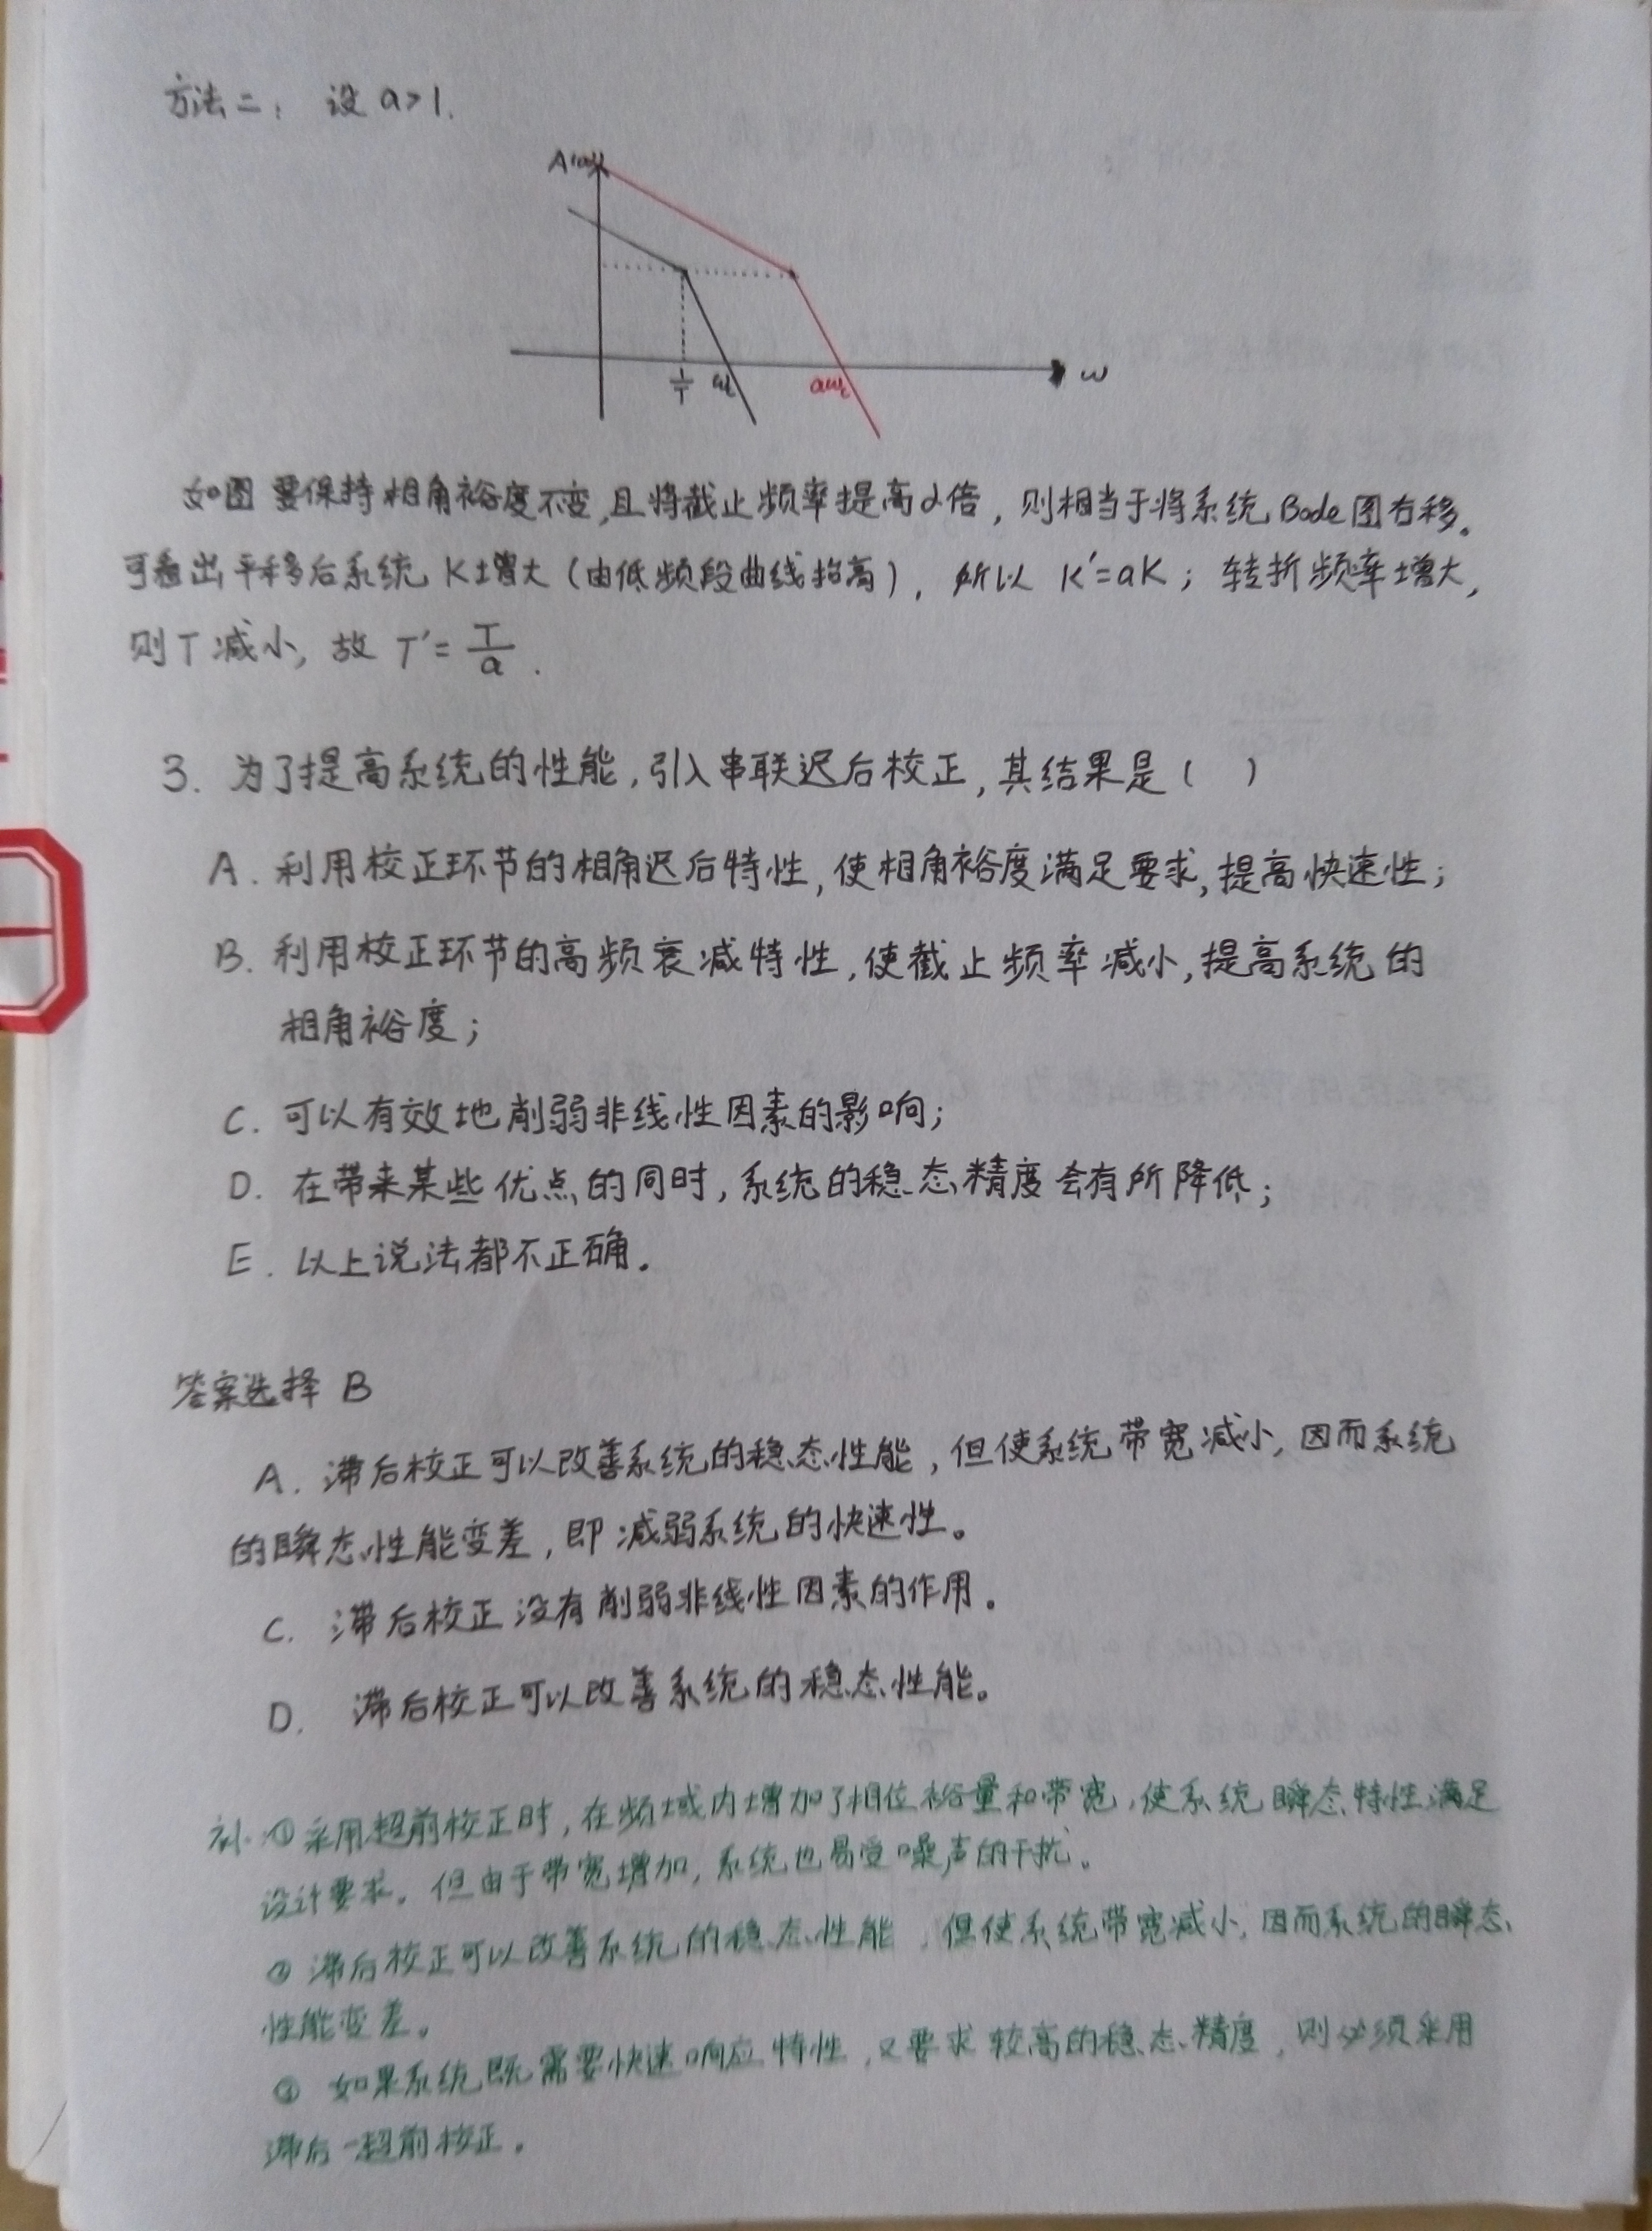 方法二： 设 a>1.
A(ω)
1/T ωc aωc ω
如图 要保持相角裕度不变,且将截止频率提高α倍，则相当于将系统Bode图右移。
可看出平移后系统 K增大（由低频段曲线抬高），所以 K'=aK；转折频率增大，
则T减小，故 T'=T/a .
3. 为了提高系统的性能，引入串联迟后校正，其结果是（ ）
A. 利用校正环节的相角迟后特性，使相角裕度满足要求，提高快速性；
B. 利用校正环节的高频衰减特性，使截止频率减小，提高系统的
相角裕度；
C. 可以有效地削弱非线性因素的影响；
D. 在带来某些优点的同时，系统的稳态精度会有所降低；
E. 以上说法都不正确。
答案选择 B
A. 滞后校正可以改善系统的稳态性能，但使系统带宽减小，因而系统
的瞬态性能变差，即减弱系统的快速性。
C. 滞后校正没有削弱非线性因素的作用。
D. 滞后校正可以改善系统的稳态性能。
补：①采用超前校正时，在频域内增加了相位裕量和带宽，使系统瞬态特性满足
设计要求。但由于带宽增加，系统也易受噪声的干扰。
② 滞后校正可以改善系统的稳态性能，但使系统带宽减小，因而系统的瞬态
性能变差。
③ 如果系统既需要快速响应特性，又要求较高的稳态精度，则必须采用
滞后-超前校正。